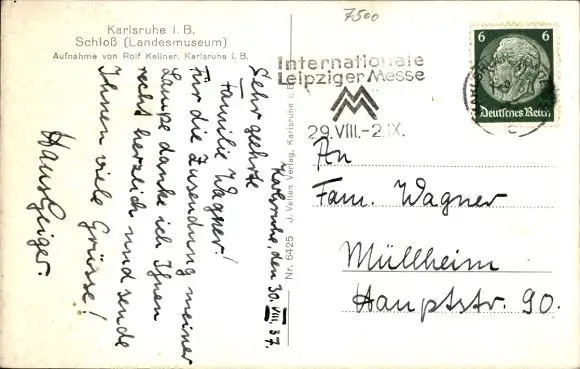 Karlsruhe i. B.
Schloß (Landesmuseum)
Aufnahme von Rolf Kellner, Karlsruhe i. B.
7500
Internationale
Leipziger Messe
MM
29.VIII.-2.IX.
6 6
Deutsches Reich
Karlsruhe, den 30. VIII. 37.
Sehr geehrte
Familie Wagner!
Für die Zusendung meiner
Lampe danke ich Ihnen
recht herzlich und sende
Ihnen viele Grüsse!
Hans Geiger.
Nr. 6425 J. Velten Verlag, Karlsruhe i. B.
An
Fam. Wagner
Müllheim
Hauptstr. 90.